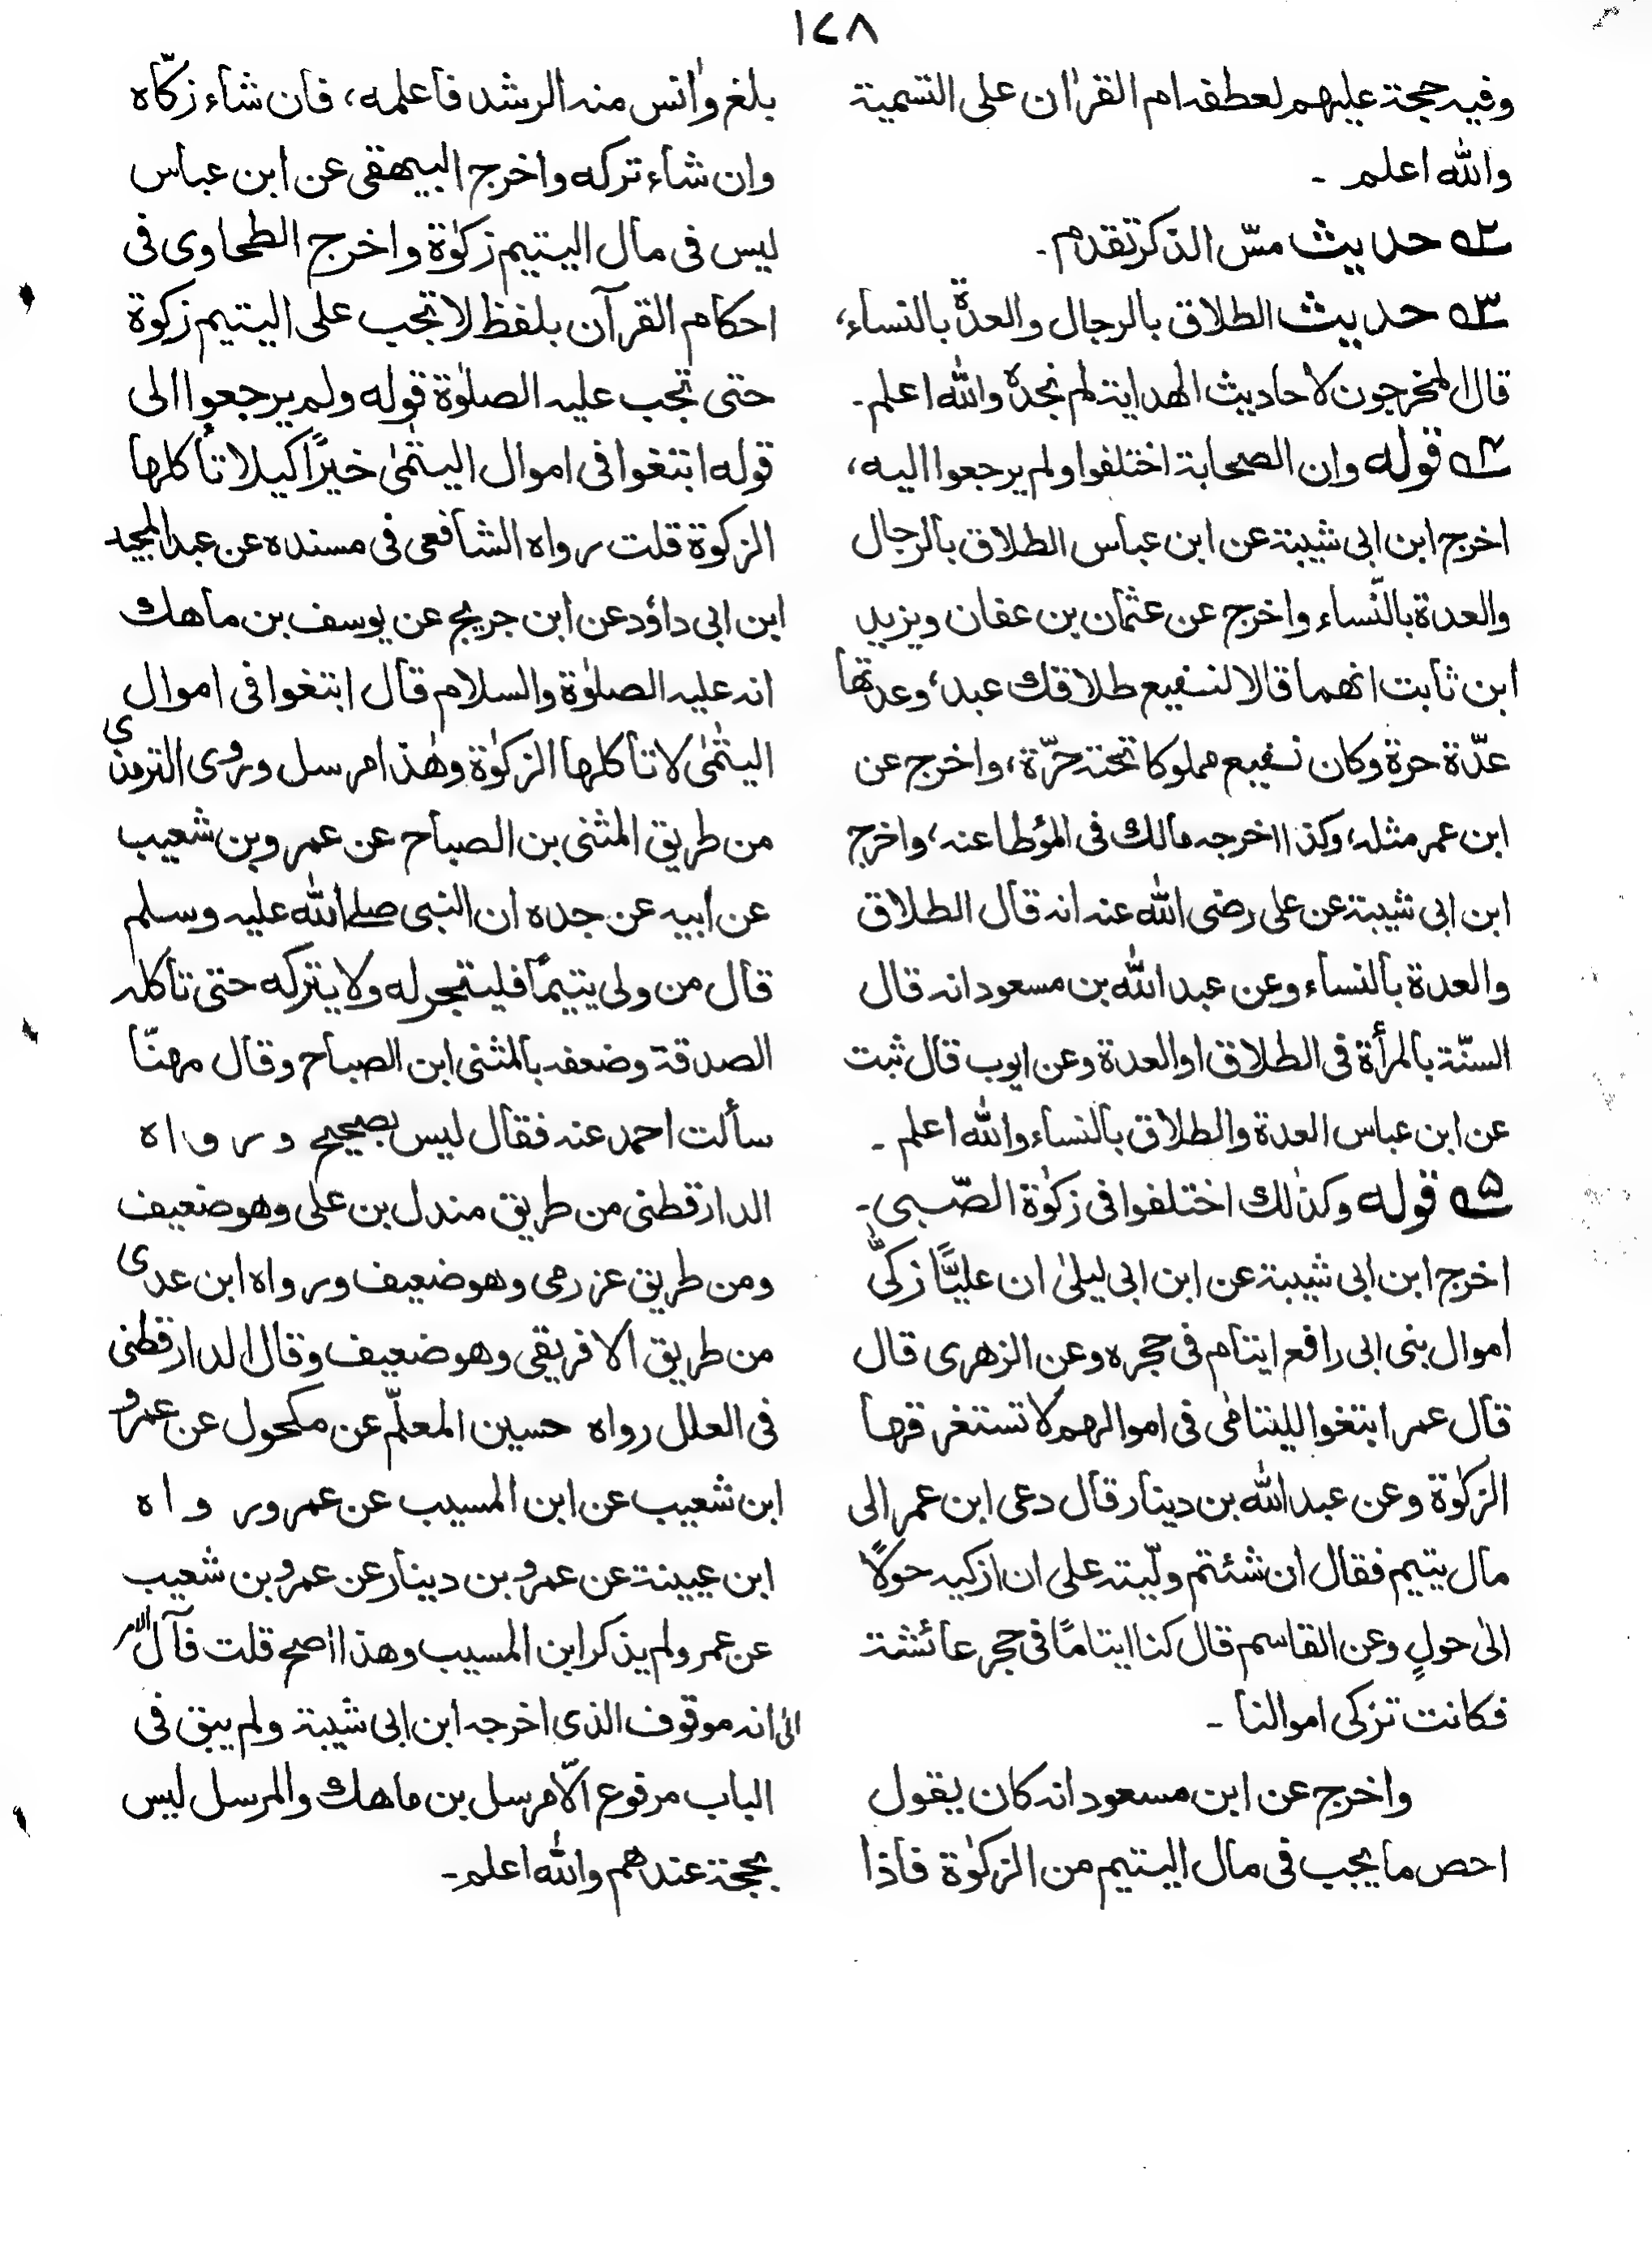 ١٤٨
وفيه حجة عليهم لعطفه ام القرآن على التسمية
والله اعلم ۔
٢ـه حديث مسّ الذكر تقدم۔
٣ـه حديث الطلاق بالرجال والعدة بالنساء،
قال المخرجون لاحاديث الهداية لم نجده والله اعلم۔
٤ـه قوله وان الصحابة اختلفوا ولم يرجعوا اليه،
اخرج ابن ابى شيبة عن ابن عباس الطلاق بالرجال
والعدة بالنّساء واخرج عن عثمان بن عفان ويزيد
ابن ثابت انهما قالا لنفيع طلاقك عبد، وعدتها
عدّة حرة وكان نفيع مملوكا تحته حرّة، واخرج عن
ابن عمر مثله، وكذا اخرجه مالك فى المؤطا عنه، واخرج
ابن ابى شيبة عن على رضى الله عنه انه قال الطلاق
والعدة بالنساء وعن عبد الله بن مسعود انه قال
السنّة بالمرأة فى الطلاق او العدة وعن ايوب قال ثبت
عن ابن عباس العدة والطلاق بالنساء والله اعلم ۔
٥ـه قوله وكذلك اختلفوا فى زكوٰة الصّبى۔
اخرج ابن ابى شيبة عن ابن ابى ليلىٰ ان عليًّا زكىّٰ
اموال بنى ابى رافع ايتام فى حجره وعن الزهرى قال
قال عمر ابتغوا لليتامىٰ فى اموالهم لا تستغرقها
الزكوٰة وعن عبد الله بن دينار قال دعى ابن عمر الى
مال يتيم فقال ان شئتم ولّيته على ان ازكيه حولًا
الىٰ حولٍ وعن القاسم قال كنا ايتامًا فى حجر عائشة
فكانت تزكى اموالنا ۔
واخرج عن ابن مسعود انه كان يقول
احص ما يجب فى مال اليتيم من الزكوٰة فاذا
بلغ وٰانس منه الرشد فاعلمه، فان شاء زكّاه
وان شاء تركه واخرج البيهقى عن ابن عباس
ليس فى مال اليتيم زكوٰة واخرج الطحاوى فى
احكام القرآن بلفظ لا تجب على اليتيم زكوة
حتى تجب عليه الصلوٰة قوله ولم يرجعوا الى
قوله ابتغوا فى اموال اليتٰمىٰ خيرًا كيلا تأكلها
الزكوة قلت رواه الشافعى فى مسنده عن عبد المجيد
ابن ابى داؤد عن ابن جريج عن يوسف بن ماهك
انه عليه الصلوٰة والسلام قال ابتغوا فى اموال
اليتٰمىٰ لا تأكلها الزكوٰة وهٰذا مرسل وروى الترمذى
من طريق المثنى بن الصباح عن عمرو بن شعيب
عن ابيه عن جده ان النبى صلے الله عليه وسلم
قال من ولى يتيمًا فليتجر له ولا يتركه حتى تأكله
الصدقة وضعفه بالمثنى ابن الصباح وقال مهنّا
سألت احمد عنه فقال ليس بصحيح ورواه
الدارقطنى من طريق مندل بن على وهو ضعيف
ومن طريق عزرمى وهو ضعيف ورواه ابن عدى
من طريق الافريقى وهو ضعيف وقال الدارقطنى
فى العلل رواه حسين المعلّم عن مكحول عن عمرو
ابن شعيب عن ابن المسيب عن عمر ورواه
ابن عيينة عن عمرو بن دينار عن عمرو بن شعيب
عن عمر ولم يذكر ابن المسيب وهذا اصح قلت فآل الامر
الىٰ انه موقوف الذى اخرجه ابن ابى شيبة ولم يبق فى
الباب مرفوع الّا مرسل بن ماهك والمرسل ليس
بحجة عندهم والله اعلم۔